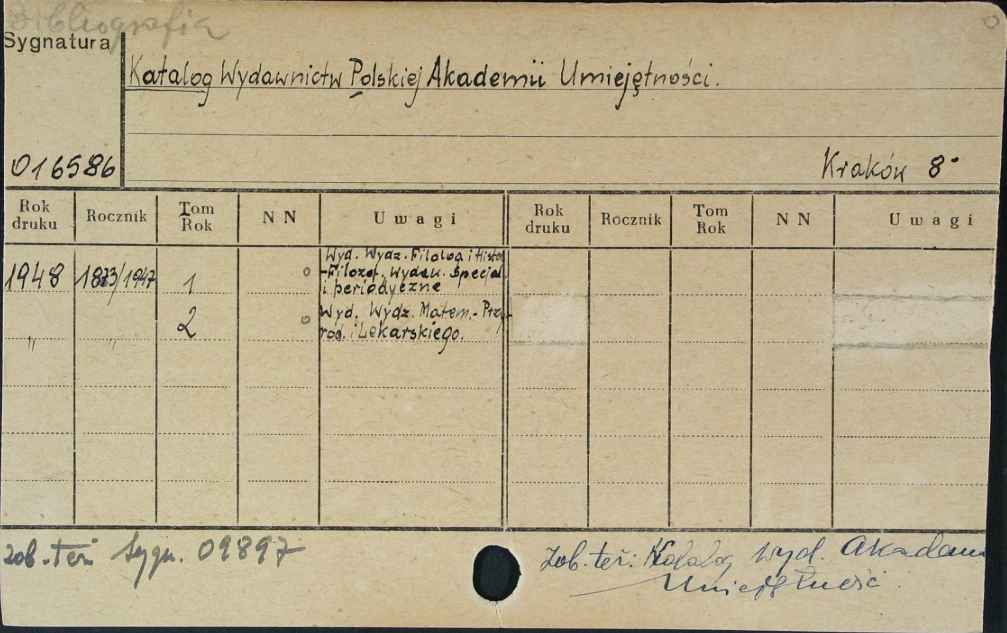 Bibliografia
Sygnatura
Katalog Wydawnictw Polskiej Akademii Umiejętności.
016586
Kraków 8°
Rok druku Rocznik Tom Rok NN Uwagi Rok druku Rocznik Tom Rok NN Uwagi
Wyd. Wydz. Filolog i Histor
1948 1873/1947 1 -Filozof. wydaw. specjal
i periodyczne
" " 2 Wyd. Wydz. Matem.-Przy-
rod. i Lekarskiego.
zob. też Sygn. 09897
zob. też: Katalog wyd. Akadem
Umiejętności.